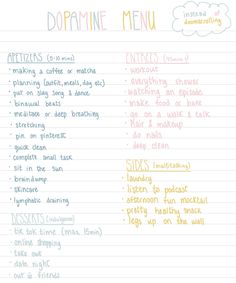 DOPAMINE MENU
instead of
doomscrolling
APPETIZERS (5-10 mins)
• making a coffee or matcha
• planning (outfit, meals, day etc)
• put on slay song & dance
• binaural beats
• meditate or deep breathing
• stretching
• pin on pinterest
• quick clean
• complete small task
• sit in the sun
• braindump
• skincare
• lymphatic draining
DESSERTS (indulgence)
• tik tok time (max 15min)
• online shopping
• take out
• date night
• out w friends
ENTREES
• workout
• everything shower
• watching an episode
• make food or bake
• go on a walk & talk
• Hair & makeup
• do nails
• deep clean
SIDES (multitasking)
• laundry
• listen to podcast
• afternoon fun mocktail
• pretty healthy snack
• legs up on the wall